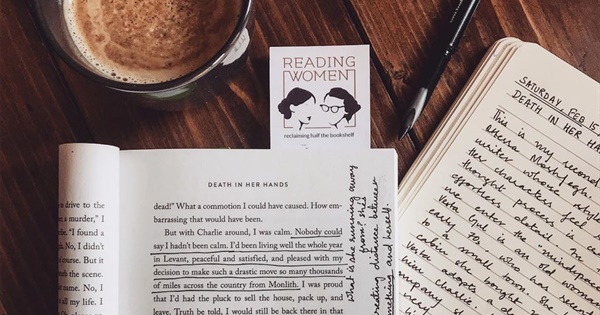 READING
WOMEN
reclaiming half the bookshelf
DEATH IN HER HANDS
dead!" What a commotion I could have caused. How em-
barrassing that would have been.
But with Charlie around, I was calm. Nobody could
say I hadn't been calm. I'd been living well the whole year
in Levant, peaceful and satisfied, and pleased with my
decision to make such a drastic move so many thousands
of miles across the country from Monlith. I was proud
that I'd had the pluck to sell the house, pack up, and
leave. Truth be told, I would still be back there in that
drive to the
a murder," I
found? No,
No, I didn't
course. But it
the scene.
name. I
all my life. I
What is she running away
from? she's
creating distance between
something and herself.
SATURDAY, FEB 15
DEATH IN HER HA
This is my second
Moshfegh
writer whose style
her character feel
thought process is
effortless
we enter the "mindspace
Vesta Gul is an old woman
early
to a small town
cabin she bought
Vesta adopts a
company